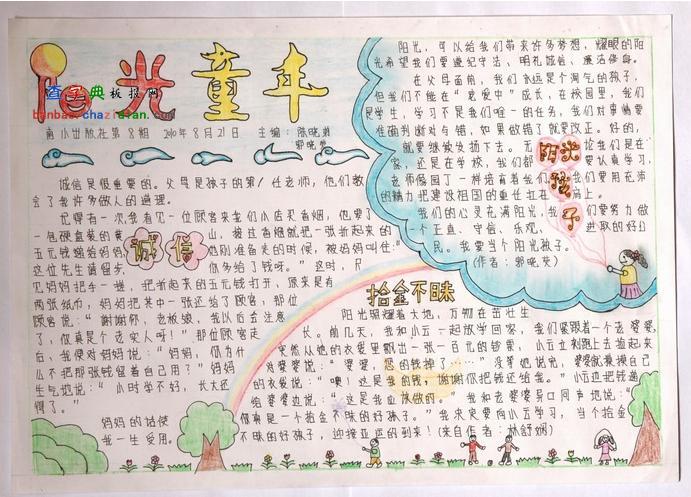 阳光童年
查字典板报网
banbao.chazidian.com
南小出版社第8期 2010年8月21日 主编：陈晓琪
郭晓英
诚信是很重要的。父母是孩子的第1任老师，他们教
会了我许多做人的道理。
记得有一次我看见一位顾客来我们小店买香烟，他要了
一包硬盒装的黄山，接过香烟就把一张折起来的
五元钱递给妈妈 他刚准备走的时候，被妈妈叫住："
这位先生请留步 你多给了钱呀。"这时，只
见妈妈把手一摊，把折起来的五元钱打开，原来是有
两张纸币，妈妈把其中一张还给了顾客，那位
顾客说："谢谢你，老板娘，我以后会注意
了，你真是个老实人呀！"那位顾客走
后，我便对妈妈说："妈妈，你为什
么不把那张钱留着自己用？"妈妈
生气地说："小时学不好，长大还
得了。"
妈妈的话使
我一生受用。
诚信
阳光，可以给我们带来许多梦想，耀眼的阳
光希望我们要遵纪守法、明礼诚信、廉洁修身。
在父母面前，我们永远是个淘气的孩子，
但我们不能在"宠爱中"成长，在校园里，我们
是学生，学习不是我们唯一的任务，我们对事情要
准确判断对与错，如果做错了就要改正。好的，
就要继续发扬下去。无论我们是在
家，还是在学校，我们都要认真学习，
老师像园丁一样培育着我们，我们要用充沛
的精力把建设祖国的重任扛在肩上。
我们的心灵充满阳光，我们要努力做
一个正直、守信、乐观、进取的好公
民。我要当个阳光孩子。
（作者：郭晓英）
阳光孩子
拾金不昧
阳光照耀着大地，万物在茁壮生
长。前几天，我和小云一起放学回家，我们紧跟着一个婆婆，
突然从她的衣袋里飘出一张一百元的钞票，小云立刻跑上去捡起来
对婆婆说："婆婆，您的钱掉了……"没等她说完，婆婆就摸摸自己
的衣袋说："噢！这是我的钱，谢谢你把钱还给我。"小云边把钱递
给婆婆边说："这是我应该做的。"我和老婆婆异口同声地说："
你真是一个拾金不昧的好孩子。"我决定要向小云学习，当个拾金
不昧的好孩子，迎接亚运的到来！（来自作者：林舒娴）